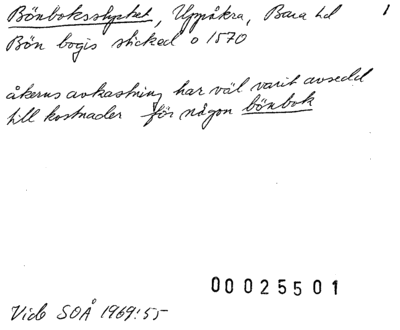 Bönboksstycket, Uppåkra, Bara hd 1
Bön bogis sticked o 1570
åkerns avkastning har väl varit avsedd
till kostnader för någon bönbok
00025501
Vide SOÅ 1969:55